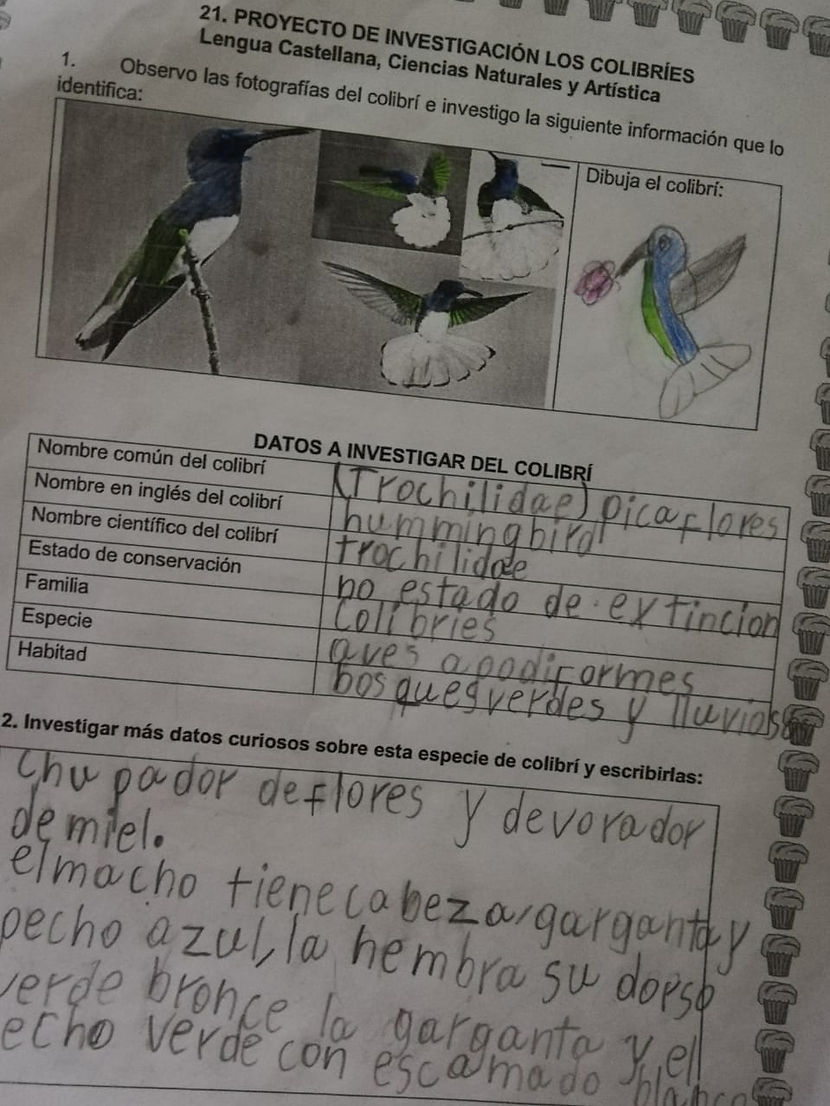 21. PROYECTO DE INVESTIGACIÓN LOS COLIBRÍES
Lengua Castellana, Ciencias Naturales y Artística
1. Observo las fotografías del colibrí e investigo la siguiente información que lo
identifica:
Dibuja el colibrí:
DATOS A INVESTIGAR DEL COLIBRÍ
Nombre común del colibrí (Trochilidae) picaflores
Nombre en inglés del colibrí hummingbird
Nombre científico del colibrí trochilidae
Estado de conservación no estado de extincion
Familia Colibries
Especie aves apodiformes
Habitad bosques verdes y lluviosa
2. Investigar más datos curiosos sobre esta especie de colibrí y escribirlas:
chupador de flores y devorador
de miel.
el macho tiene cabeza, garganta y
pecho azul, la hembra su dorso
verde bronce la garganta y el
echo verde con escamado blanco